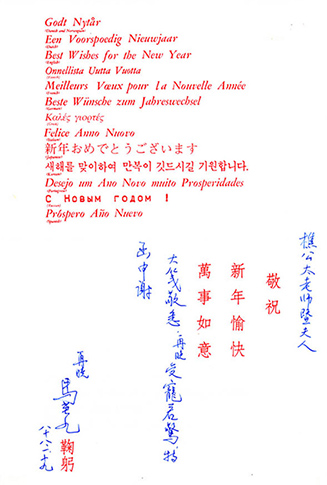 Godt Nytår
(Danish and Norwegian)
Een Voorspoedig Nieuwjaar
(Dutch)
Best Wishes for the New Year
(English)
Onnellista Uutta Vuotta
(Finnish)
Meilleurs Vœux pour la Nouvelle Année
(French)
Beste Wünsche zum Jahreswechsel
(German)
Καλές γιορτές
(Greek)
Felice Anno Nuovo
(Italian)
新年おめでとうございます
(Japanese)
새해를 맞이하여 만복이 깃드시길 기원합니다.
(Korean)
Desejo um Ano Novo muito Prosperidades
(Portuguese)
С Новым годом !
(Russian)
Próspero Año Nuevo
(Spanish)
樵公太老師暨夫人
敬祝
新年愉快
萬事如意
大箋敬悉再晚受寵若驚特
函申謝
再晚
馬英九
鞠躬